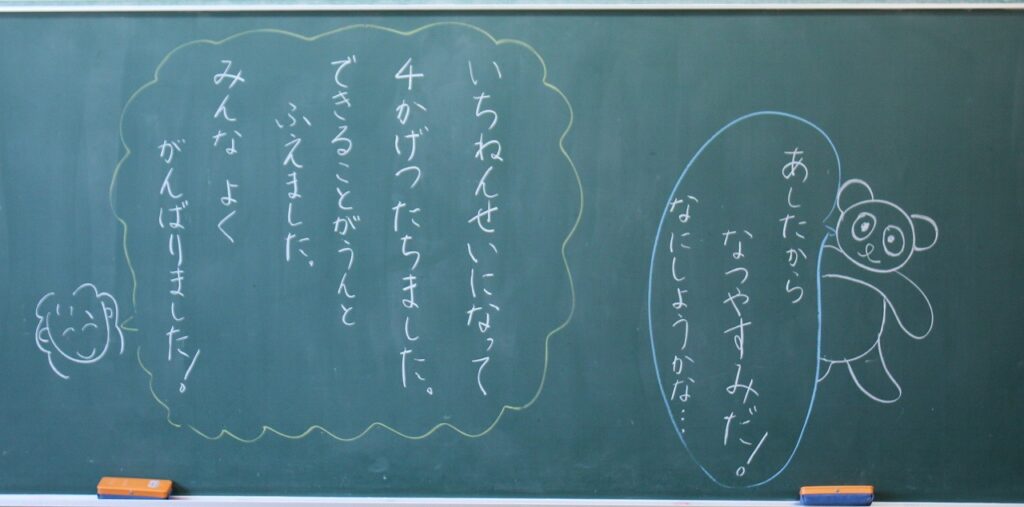 あしたから
なつやすみだ!
なにしようかな…
いちねんせいになって
4かげつたちました。
できることがうんと
ふえました。
みんな よく
がんばりました!